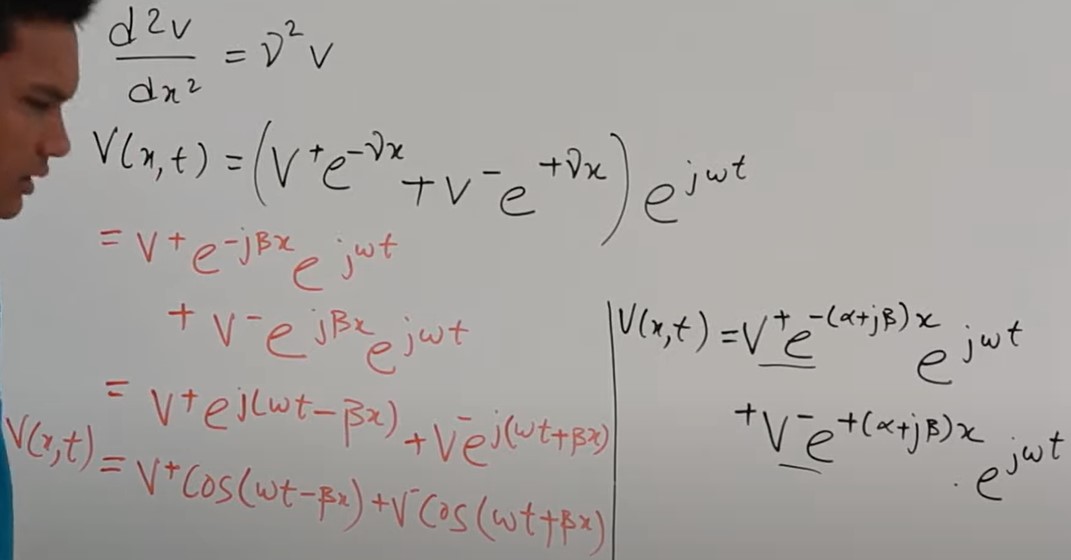 d²v/dx² = γ²v
V(x,t) = (V⁺e^(-γx) + V⁻e^(+γx)) e^(jωt)
= V⁺e^(-jβx) e^(jωt)
+ V⁻e^(jβx) e^(jωt)
= V⁺e^(j(ωt-βx)) + V⁻e^(j(ωt+βx))
V(x,t) = V⁺Cos(ωt-βx) + V⁻Cos(ωt+βx)
V(x,t) = V⁺e^(-(α+jβ)x) e^(jωt)
+ V⁻e^(+(α+jβ)x) . e^(jωt)